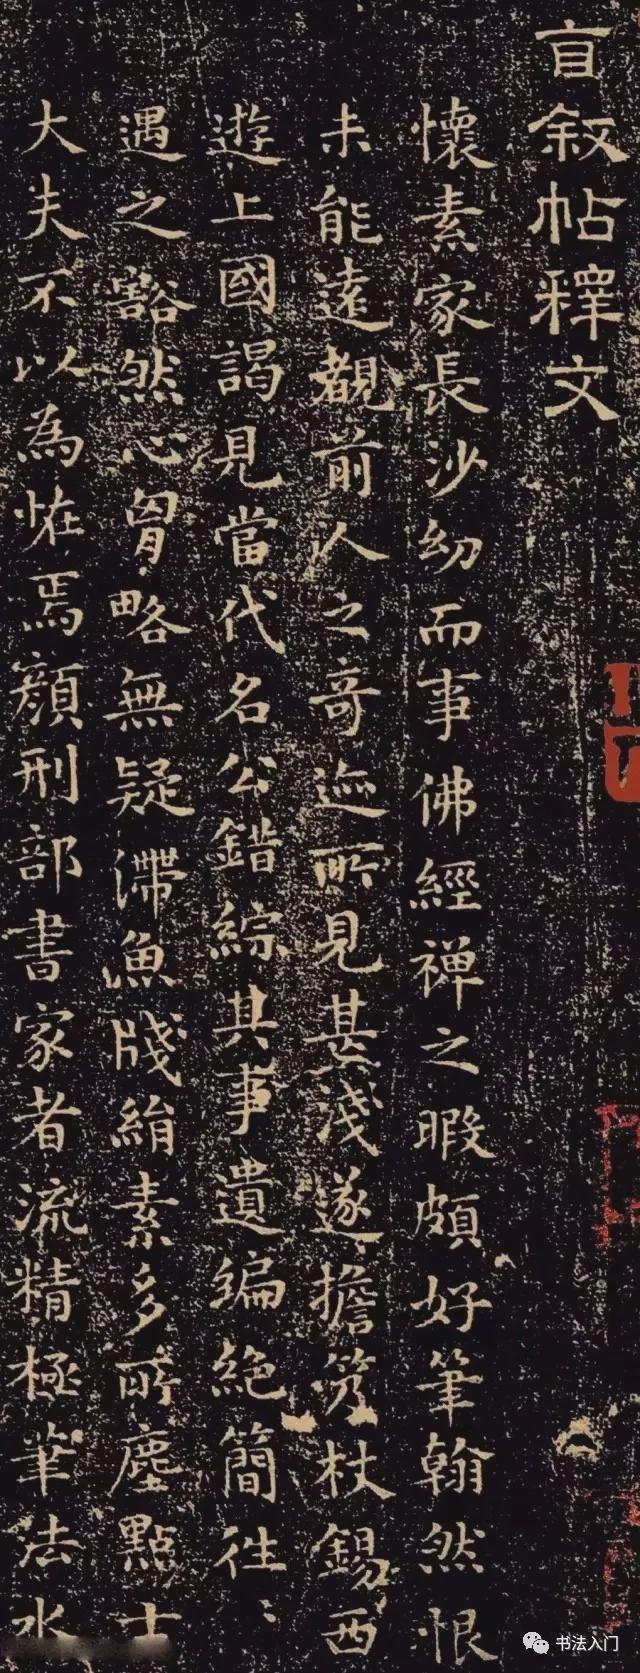 自叙帖釋文
懷素家長沙幼而事佛經禪之暇頗好筆翰然恨
未能遠覩前人之奇迹所見甚淺遂擔笈杖錫西
遊上國謁見當代名公錯綜其事遺編絶簡往〻
遇之豁然心胷略無疑滯魚牋絹素多所塵點士
大夫不以為恠焉顔刑部書家者流精極筆法水
书法入门